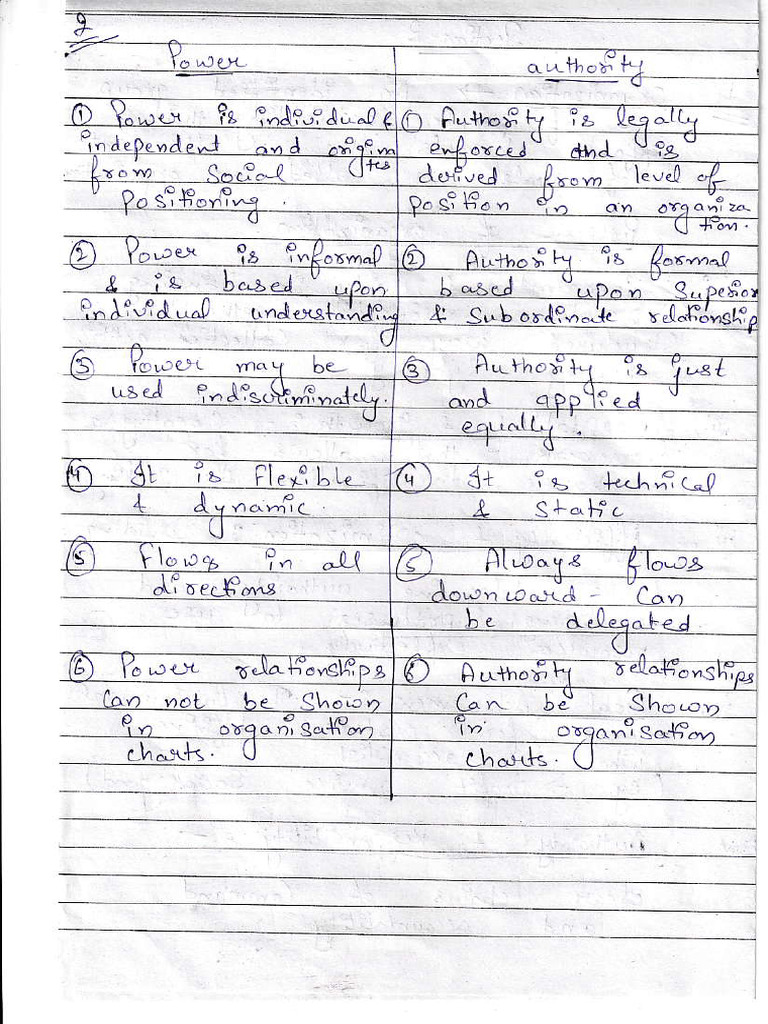 2
Power
authority
① Power is individual &
independent and origina
tes
from Social
positioning.
① Authority is legally
enforced and is
derived from level of
position in an organiza
tion.
② Power is informal
& is based upon
individual understanding
② Authority is formal
based upon Superior
& Subordinate relationship
③ Power may be
used indiscriminately.
③ Authority is just
and applied
equally.
④ It is flexible
& dynamic.
④ It is technical
& Static
⑤ Flows in all
directions
⑤ Always flows
downward - Can
be delegated.
⑥ Power relationships
Can not be Shown
in organisation
charts.
⑥ Authority relationships
Can be Shown
in organisation
charts.